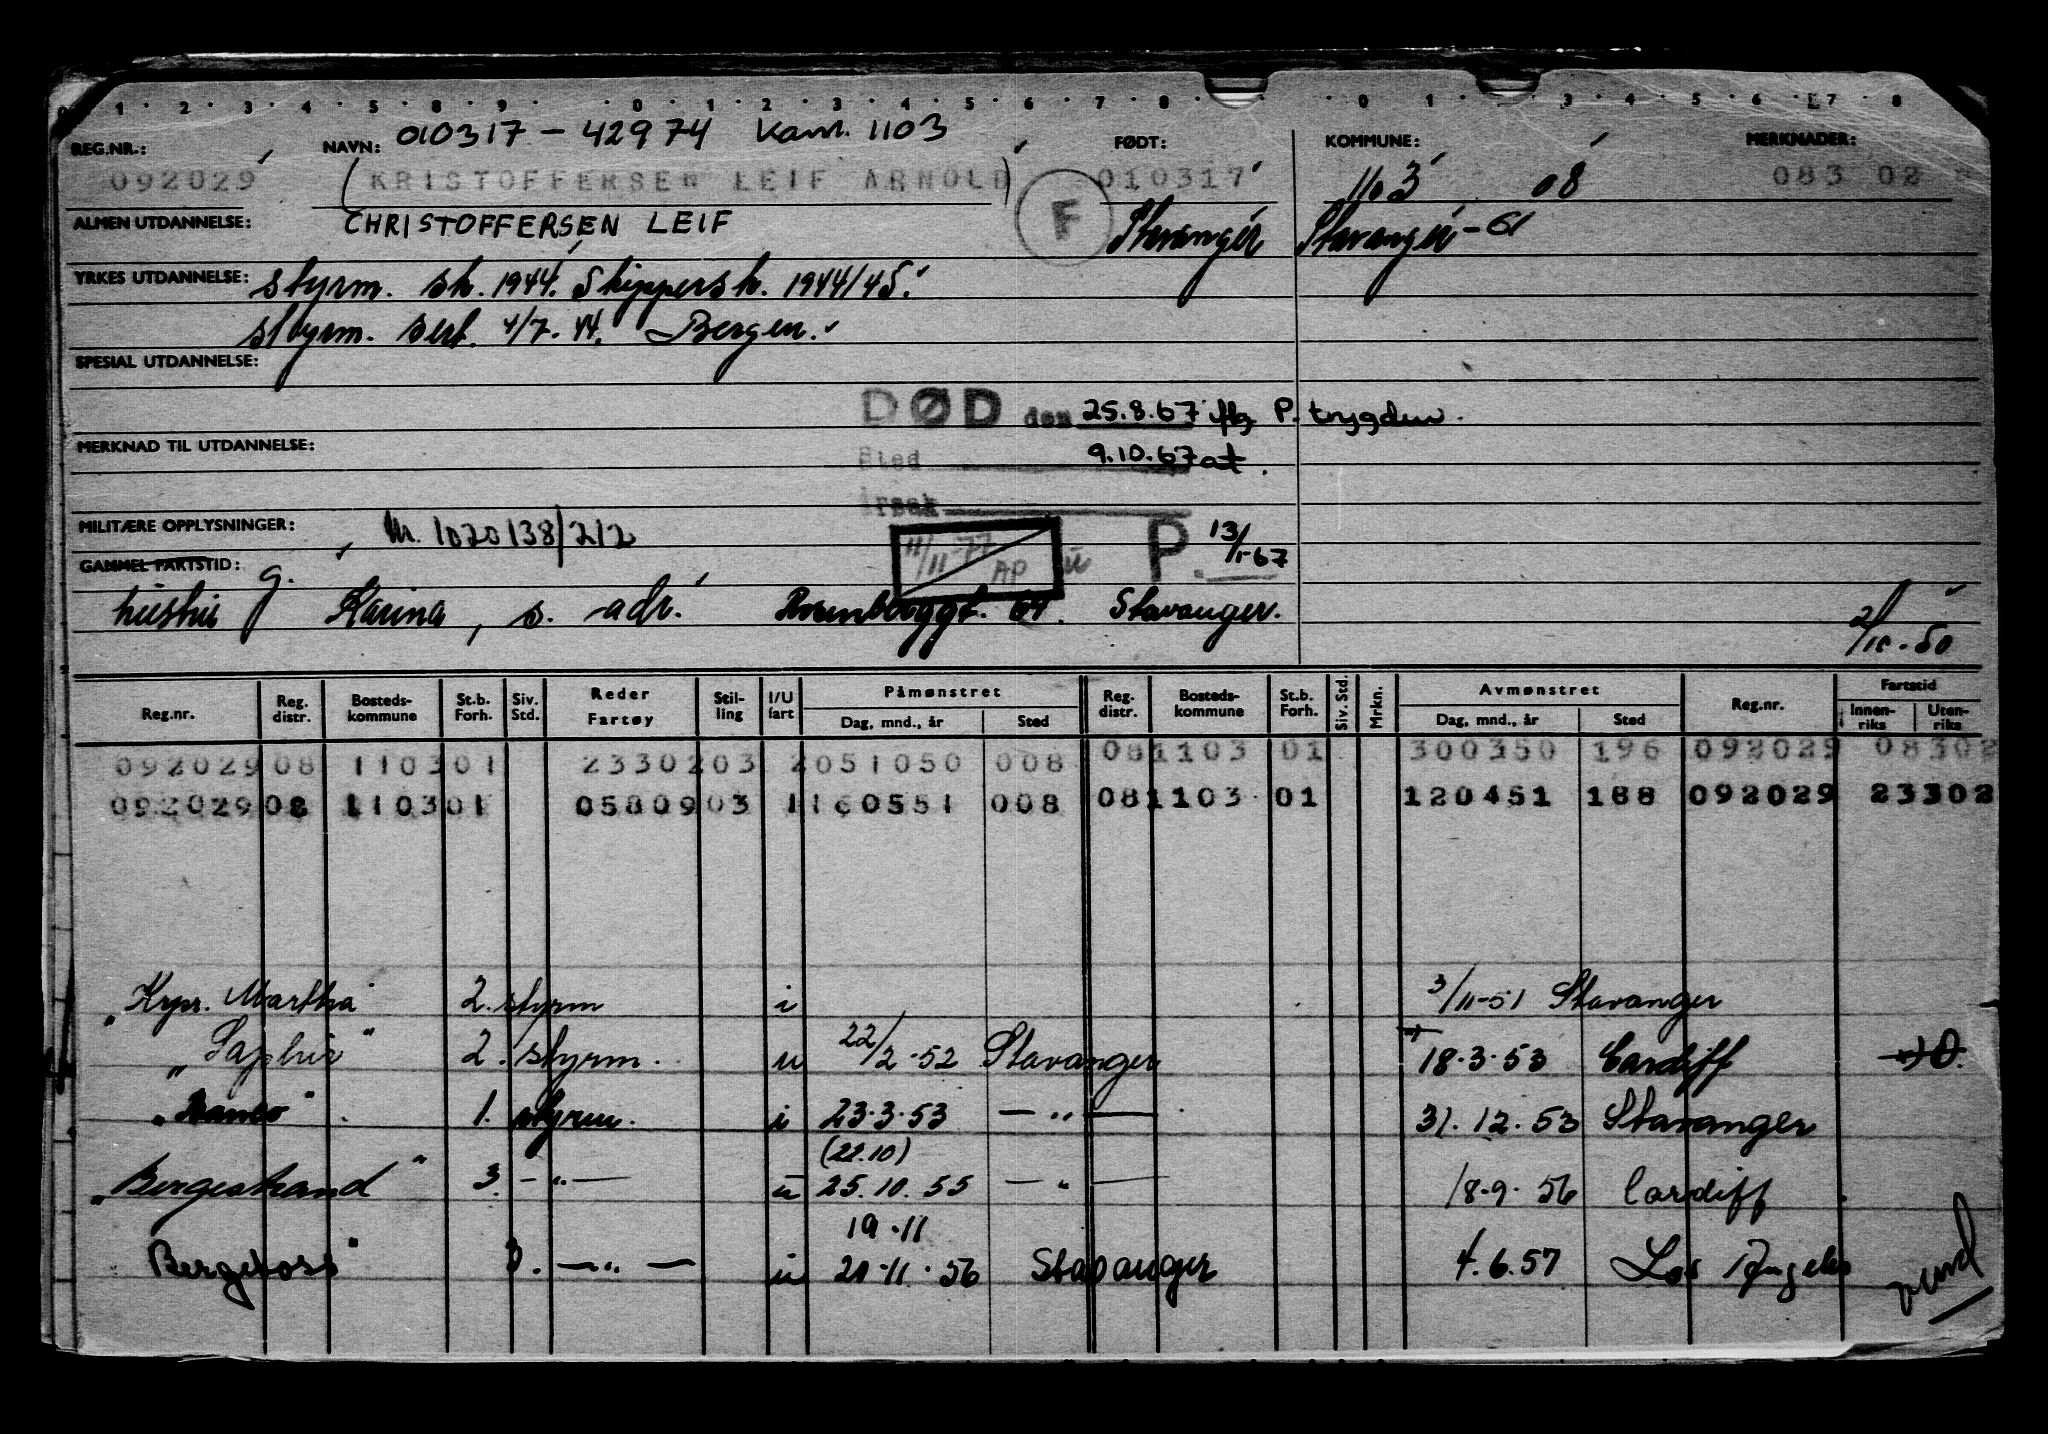 0 1 2 3 4 5 6 8 9 0 1 2 3 4 5 6 7 8 0 1 3 4 5 6 7 8
010317 - 42974 kom. 1103
REG.NR.: NAVN: FØDT: KOMMUNE: MERKNADER:
092029 (KRISTOFFERSEN LEIF ARNOLD) 010317 1103 08 083 02
ALMEN UTDANNELSE: CHRISTOFFERSEN LEIF F Stavanger Stavanger - 61
YRKES UTDANNELSE: styrm. sk. 1944. Skippersk. 1944/45.
styrm. sert. 4/7. 44. Bergen.
SPESIAL UTDANNELSE:
DØD den 25.8.67 iflg P. trygden.
MERKNAD TIL UTDANNELSE:
Sted 9.10.67 at.
Årsak
MILITÆRE OPPLYSNINGER: Nr. 1020138/212
11/11-77 AP P. 13/1-67
GAMMEL FARTSTID: g.
hustru Karina, s. adr. 64. Stavanger.
2/10-50
Reg.nr. Reg. distr. Bosteds-kommune St.b. Forh. Siv. Std. Reder Fartøy Stil-ling I/U fart Påmønstret Dag, mnd., år Sted Reg. distr. Bosteds-kommune St.b. Forh. Siv. Std. Mrkn. Avmønstret Dag, mnd., år Sted Reg.nr. Fartstid Innen-riks Uten-riks
092029 08 1103 01 23302 03 2 051050 008 08 1103 01 300350 196 092029 08302
092029 08 1103 01 05809 03 1 160551 008 08 1103 01 120451 188 092029 23302
"Krpr. Martha" 2. styrm i 3/11-51 Stavanger
"Saphir" 2. styrm. u 22/2-52 Stavanger 18.3.53 Cardiff
1. styrm. i 23.3.53 — " — 31.12.53 Stavanger
(22.10)
"Bergestrand" 3. — " — u 25.10.55 — " — 18.9.56 Cardiff
19.11
Bergeboss" 3. — " — u 20.11.56 Stavanger 4.6.57 Los Angeles